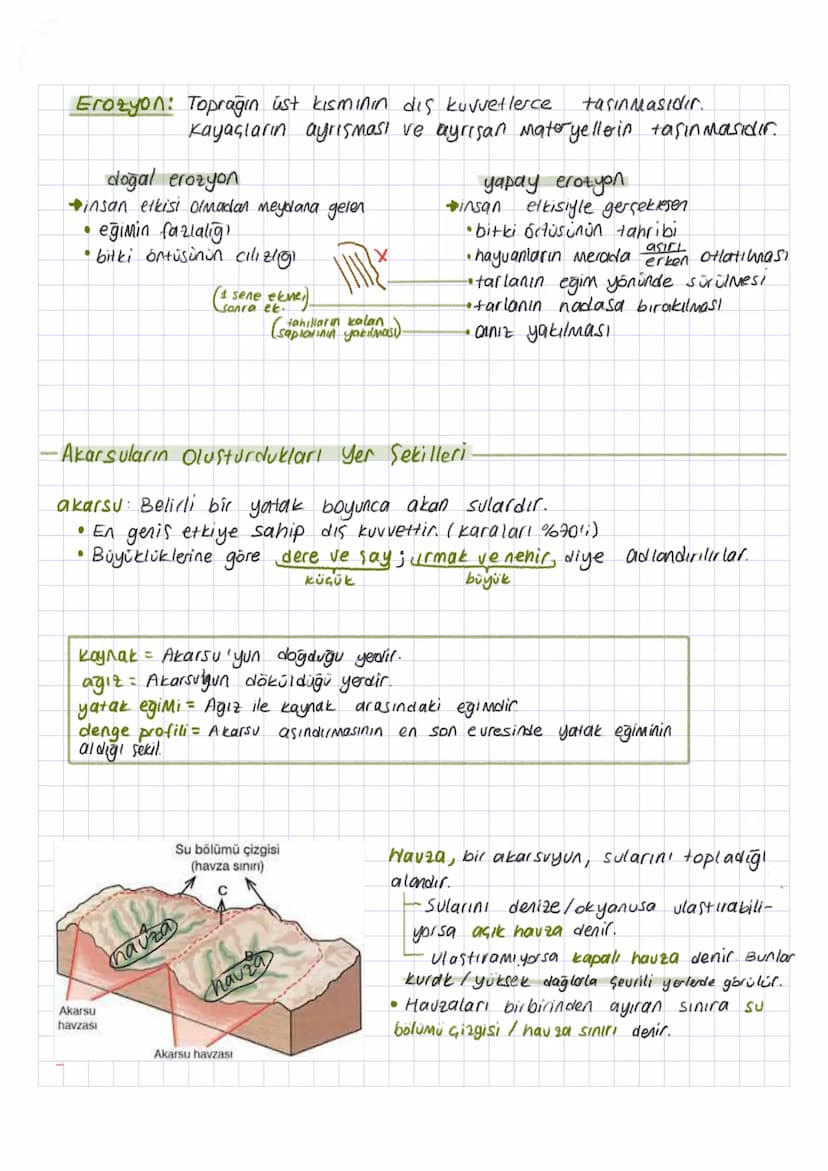 Erozyon: Toprağın üst kısmının dış kuvvetlerce taşınmasıdır.
Kayaçların ayrışması ve ayrışan materyellerin taşınmasıdır.
doğal erozyon
→insan etkisi olmadan meydana gelen
• eğimin fazlalığı
• bitki örtüsünün cılızlığı
yapay erozyon
→insan etkisiyle gerçekleşen
• bitki örtüsünün tahribi
• hayvanların merada aşırı/erken otlatılması
• tarlanın eğim yönünde sürülmesi
• tarlanın nadasa bırakılması
• anız yakılması
x
(1 sene ekme,
sonra ek.)
(tahılların kalan
saplarının yakılması)
Akarsuların Oluşturdukları Yer Şekilleri
akarsu: Belirli bir yatak boyunca akan sulardır.
• En geniş etkiye sahip dış kuvvettir. (karaları %70'i)
• Büyüklüklerine göre dere ve çay; ırmak ve nehir, diye adlandırılırlar.
küçük büyük
kaynak = Akarsu'yun doğduğu yerdir.
ağız = Akarsuyun döküldüğü yerdir.
yatak eğimi = Ağız ile kaynak arasındaki eğimdir
denge profili = Akarsu aşındırmasının en son evresinde yatak eğiminin
aldığı şekil.
Su bölümü çizgisi
(havza sınırı)
C
havza
B
havza
Akarsu
havzası
Akarsu havzası
Havza, bir akarsuyun, sularını topladığı
alandır.
Sularını denize/okyanusa ulaştırabili-
yorsa açık havza denir.
Ulaştıramıyorsa kapalı havza denir. Bunlar
kurak / yüksek dağlarla çevrili yerlerde görülür.
• Havzaları birbirinden ayıran sınıra su
bölümü çizgisi / havza sınırı denir.